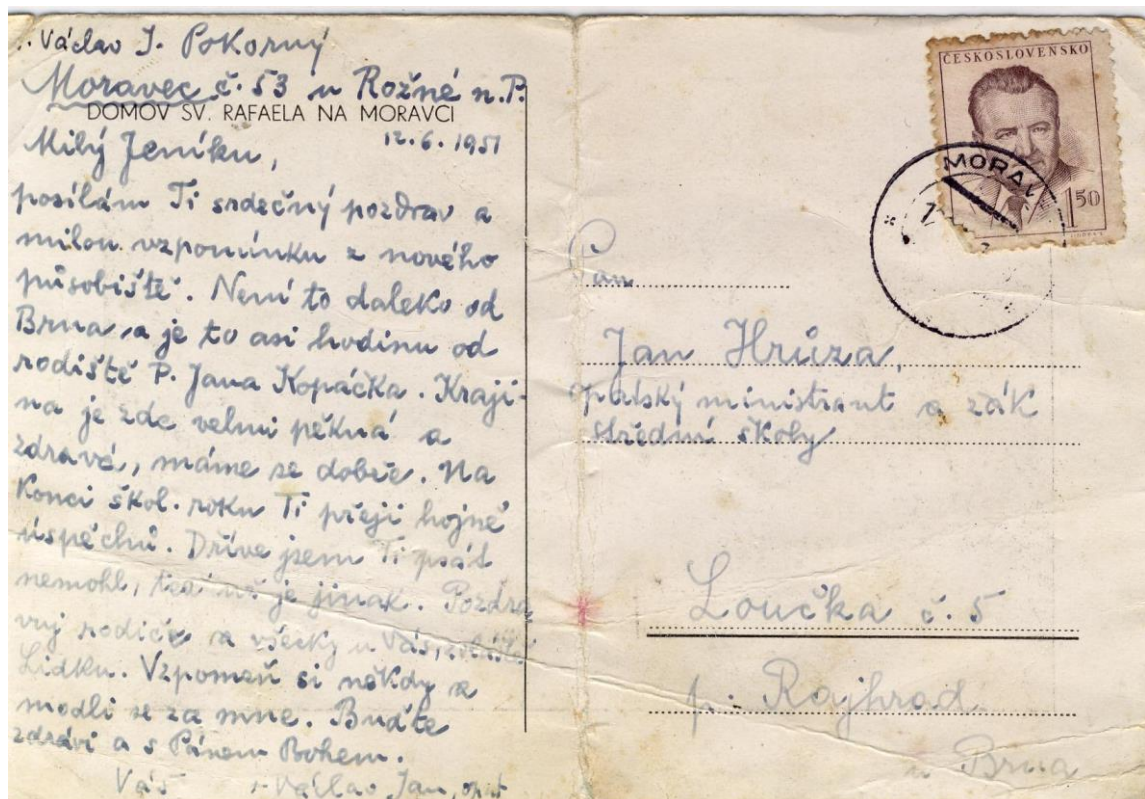 Václav J. Pokorný
Moravec č. 53 u Rožné n. P.
DOMOV SV. RAFAELA NA MORAVCI
12.6.1951
Milý Jeníku,
posílám Ti srdečný pozdrav a
milou vzpomínku z nového
působiště. Není to daleko od
Brna a je to asi hodinu od
rodiště P. Jana Kopáčka. Kraji-
na je zde velmi pěkná a
zdravá, máme se dobře. Na
konci škol. roku Ti přeji hojně
úspěchů. Dříve jsem Ti psát
nemohl, je jinak. Pozdra
vuj rodiče a všecky u Vás,
Lidku. Vzpomeň si někdy a
modli se za mne. Buďte
zdrávi a s Pánem Bohem.
Váš Václav Jan, opat
ČESKOSLOVENSKO
1 50
MORAV
Pan
Jan Hrůza,
opatský ministrant a žák
střední školy
Loučka č. 5
p. Rajhrad
u Brna